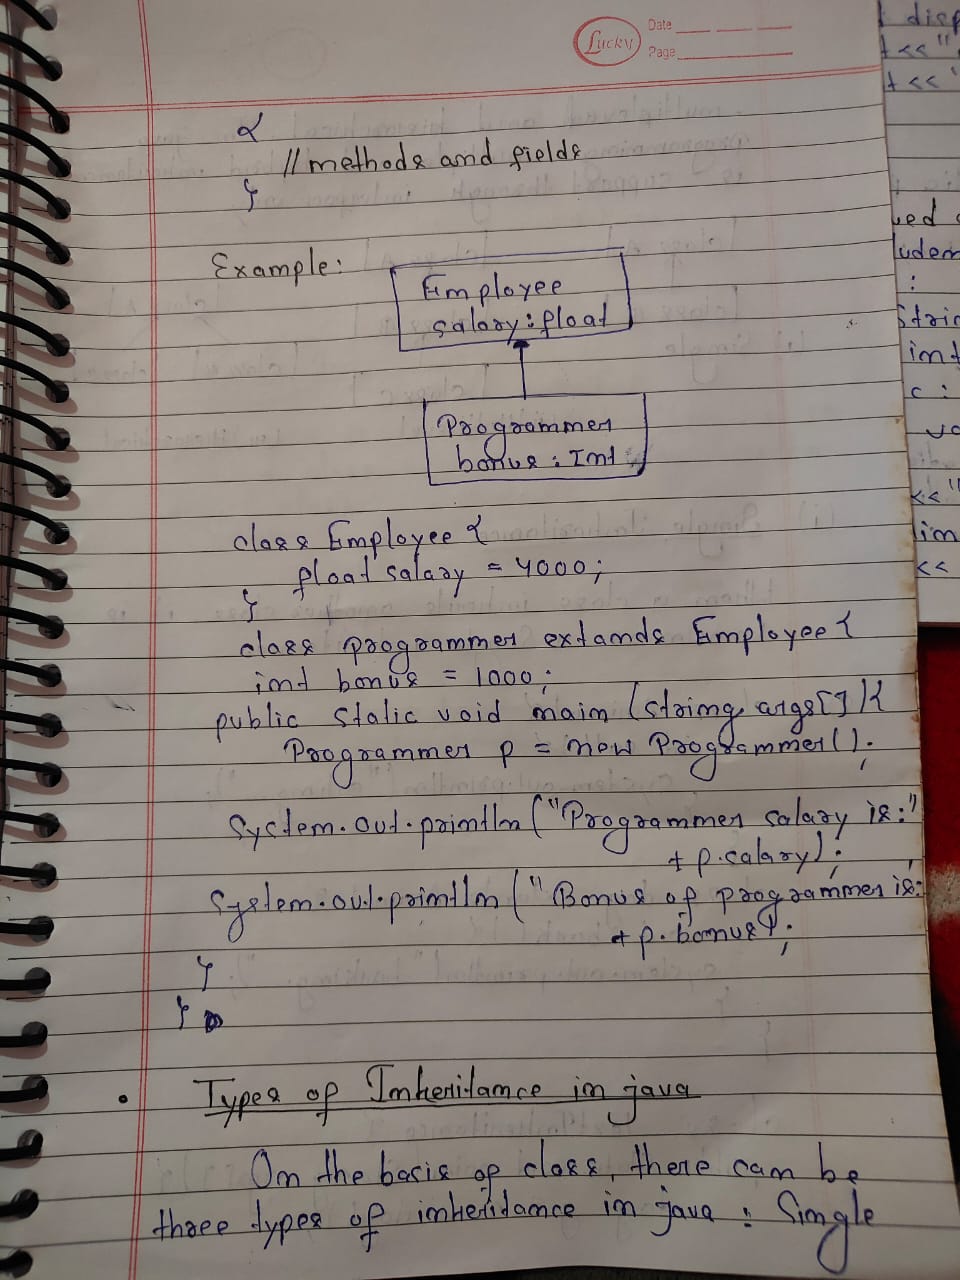 Lucky
Date
Page
{
// methods and fields
}
Example:
Employee
salary: float
Programmer
bonus: Int
class Employee {
float salary = 4000;
}
class programmer extands Employee {
int bonus = 1000;
public static void main (string args[]){
Programmer p = new Programmer();
System.out.println("Programmer salary is:"
+ p.salary);
System.out.println("Bonus of programmer is:
+ p.bonus);
}
}
• Types of Inheritance in java
On the basis of class, there can be
three types of inheritance in java: Single
disp
<<"
<<"
ludem
:
int
c:
<<"
<<